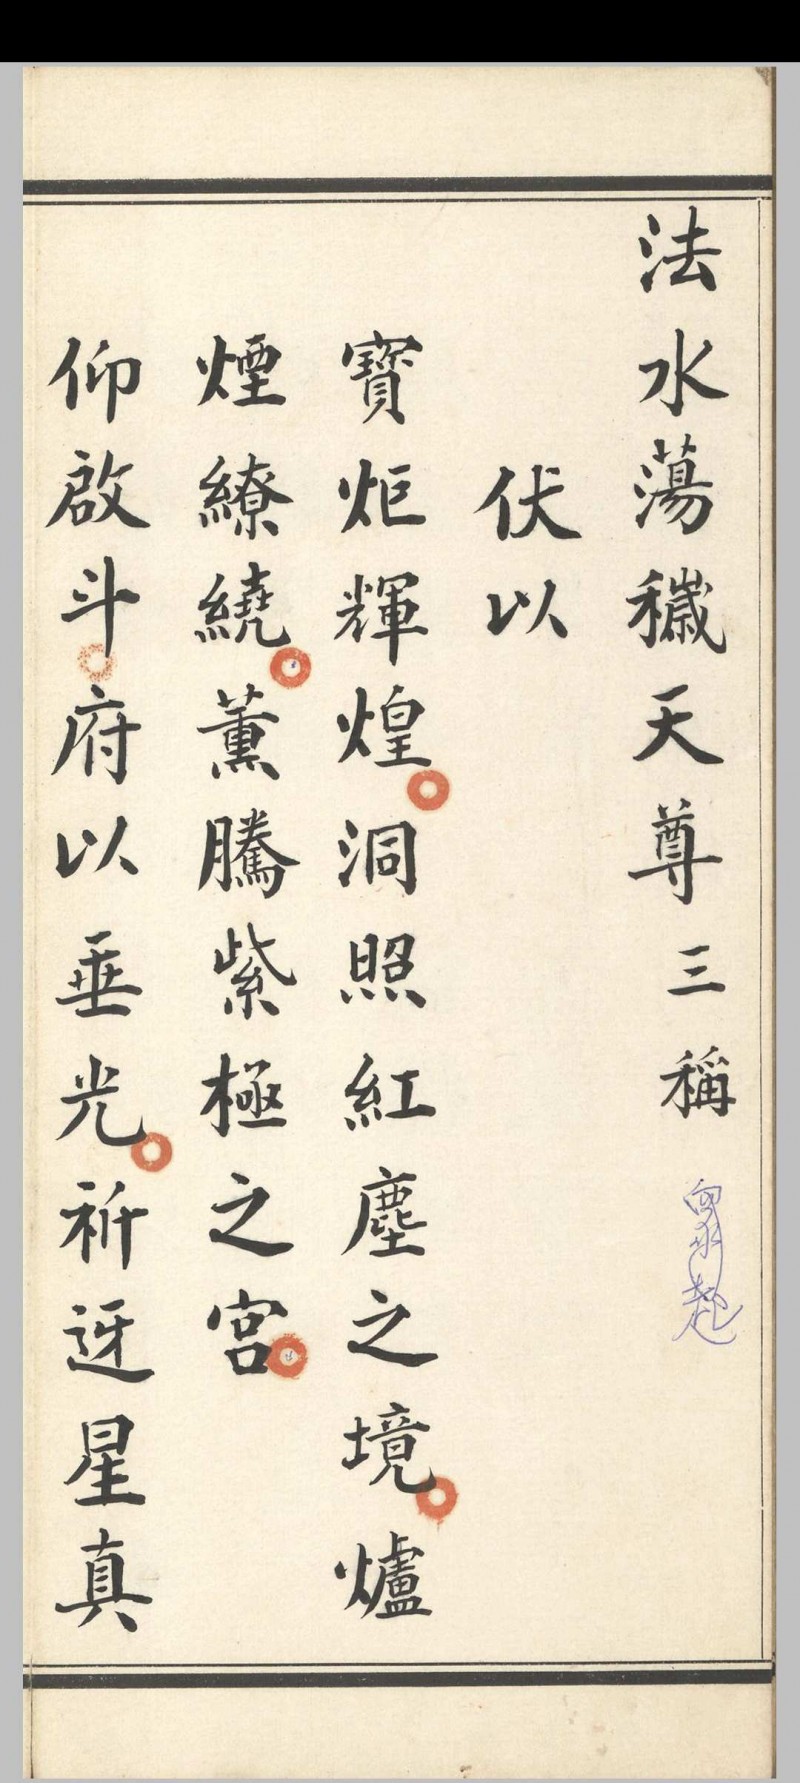 法水蕩穢天尊三稱
伏以
寶炬輝煌洞照紅塵之境爐
煙繚繞薰騰紫極之宮
仰啟斗府以垂光祈迓星真